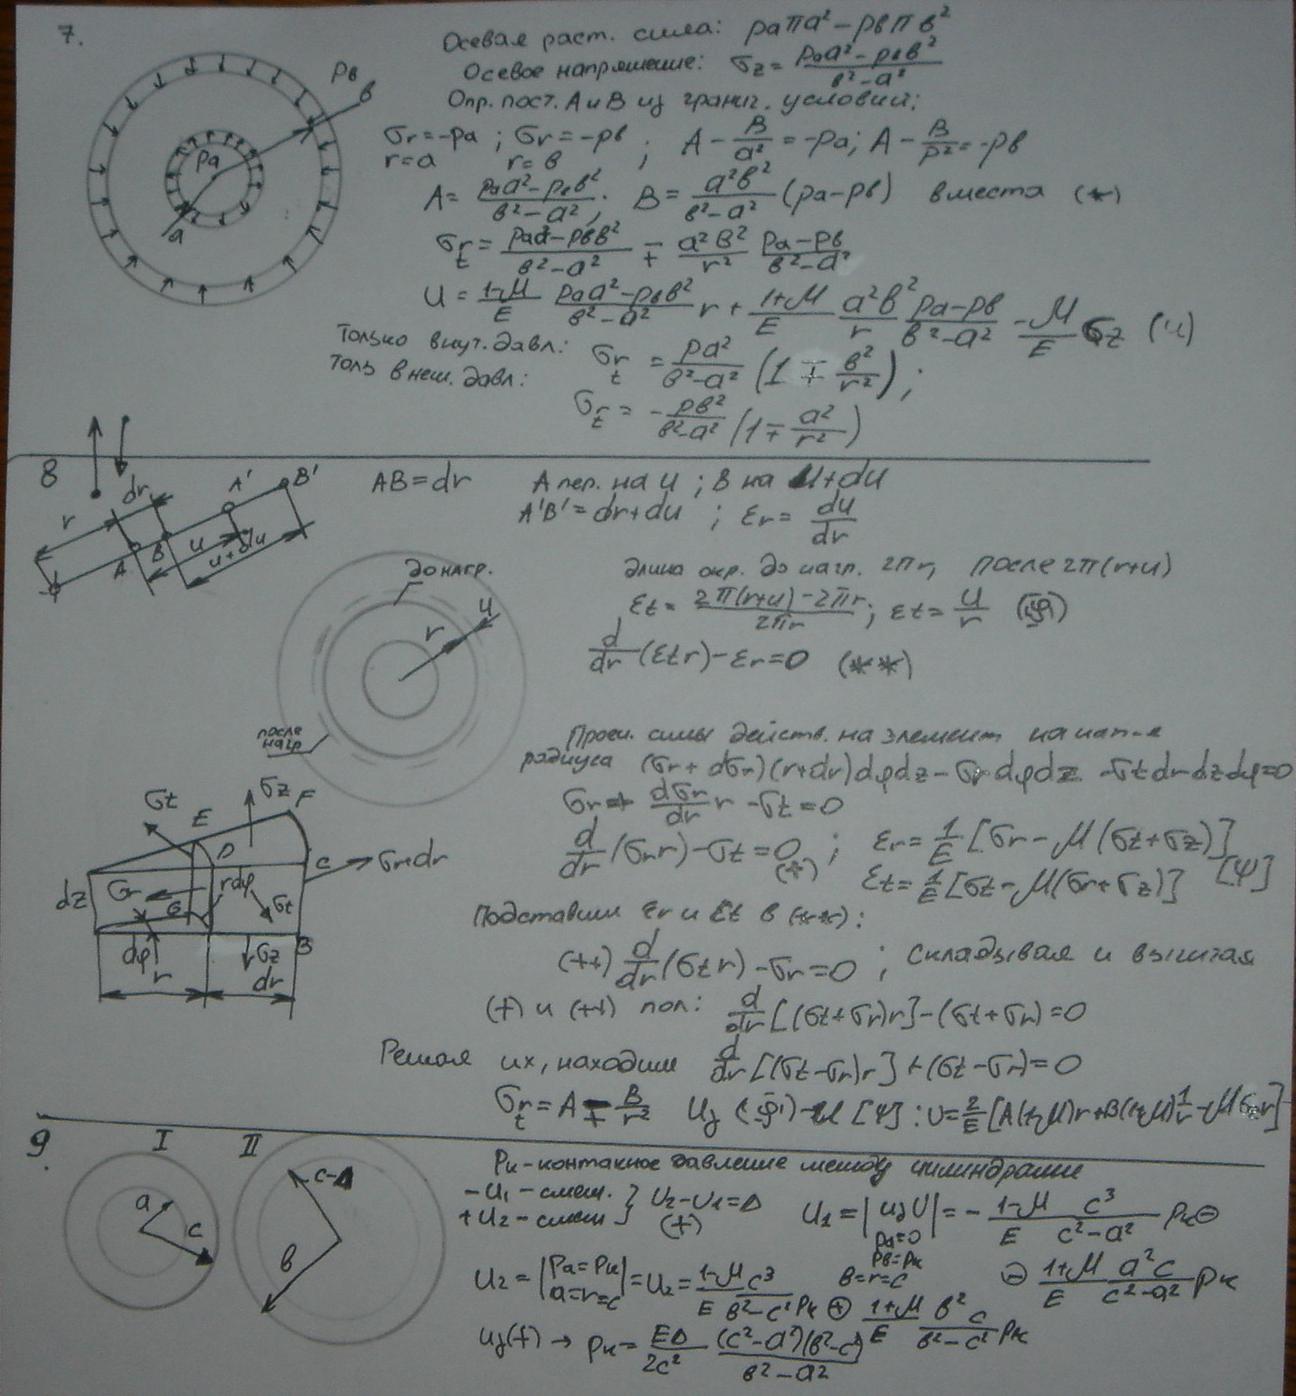 7.
Осевая раст. сила: paπa² − pвπв²
Осевое напряжение: σz = (paa² − pвв²)/(в² − a²)
Опр. пост. A и B из гранич. условий:
σr = −pa ; σr = −pв ; A − B/a² = −pa; A − B/в² = −pв
r=a r=в
A = (paa² − pвв²)/(в² − a²); B = a²в²/(в² − a²) (pa−pв) вместа (*)
σr/t = (paa² − pвв²)/(в² − a²) ∓ a²в²/r² (pa−pв)/(в²−a²)
U = (1−μ)/E (paa² − pвв²)/(в² − a²) r + (1+μ)/E a²в²/r (pa−pв)/(в²−a²) − μ/E σz (u)
Только внут. давл: σr/t = pa²/(в²−a²) (1 ∓ в²/r²);
Толь внеш. давл: σr/t = − pв²/(в²−a²) (1 ∓ a²/r²)
pв
в
pa
a
8
AB = dr A пер. на u ; B на u+du
A'B' = dr+du ; εr = du/dr
r dr A B A' B' u u+du
длина окр. до нагр. 2πr, после 2π(r+u)
εt = (2π(r+u) − 2πr)/2πr; εt = u/r (φ)
d/dr (εt r) − εr = 0 (**)
до нагр.
r u
после нагр
Проец. силы действ. на элемент на нап-е
радиуса (σr + dσr)(r+dr)dφdz − σr dφdz − σt dr dz dφ = 0
σr + dσr/dr r − σt = 0
d/dr (σr r) − σt = 0 (+) ; εr = 1/E [σr − μ(σt+σz)]
εt = 1/E [σt − μ(σr+σz)] [ψ]
σt E σz F
D C σr dr
dz σr rdφ G σt
dφ r σz dr B
Подставим εr и εt в (**):
(++) d/dr (σt r) − σr = 0 ; складывая и вычитая
(+) и (++) пол: d/dr [(σt+σr)r] − (σt+σr) = 0
Решая их, находим d/dr [(σt−σr)r] + (σt−σr) = 0
σr/t = A ∓ B/r² Из (φ) и [ψ] :
9.
I II
a c
c−Δ
в
Pк - контакное давление между цилиндрами
−U₁ − смещ. } U₂−U₁=Δ
+U₂ − смещ (+)
U₁ = | из U | = − (1−μ)/E c³/(c²−a²) pк ⊖
pa=0
pв=pк
в=r=c ⊖ (1+μ)/E a²c/(c²−a²) pк
U₂ = | pa=pк a=r=c | = U₂ = (1−μ)/E c³/(в²−c²) pк ⊕ (1+μ)/E в²c/(в²−c²) pк
из (+) → pк = EΔ/2c² (c²−a²)(в²−c²)/(в²−a²)